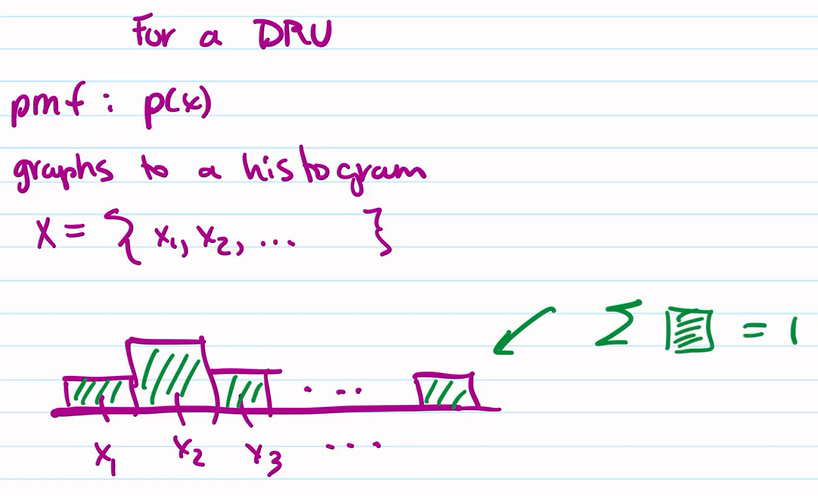 For a DRV
pmf : p(x)
graphs to a histogram
X = { x₁, x₂, ... }
Σ = 1
...
x₁ x₂ x₃ ...